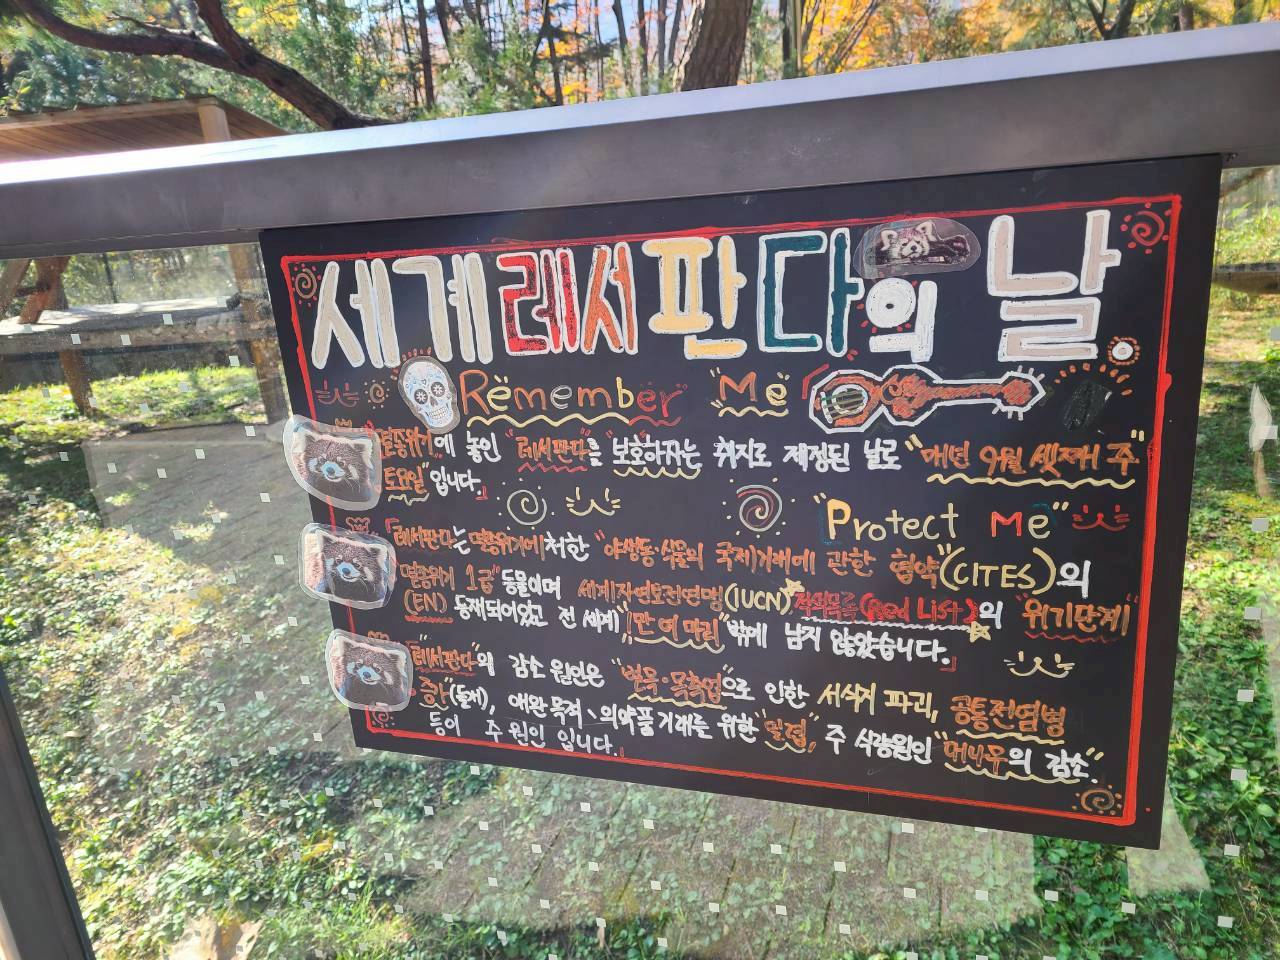 세계 레서판다의 날.
Remember "Me"
"멸종위기에 놓인 "레서판다"를 "보호하자"는 취지로 제정된 날로 "매년 9월 셋째 주
토요일"입니다.」
"Protect Me"
「레서판다는 멸종위기에 처한 "야생동·식물의 국제거래에 관한 협약"(CITES)의
멸종위기 1급" 동물이며 세계자연보전연맹(IUCN) 적색목록(Red List)의 "위기단계"
(EN) 등재되어있고 전 세계 "1만 여 마리" 밖에 남지 않았습니다.」
「"레서판다"의 감소 원인은 "벌목·목축업"으로 인한 서식지 파괴, 공통전염병
증가(홍역), 애완 목적、의약품 거래를 위한 "밀렵", 주 식량원인 "대나무의 감소"
등이 주 원인 입니다.」